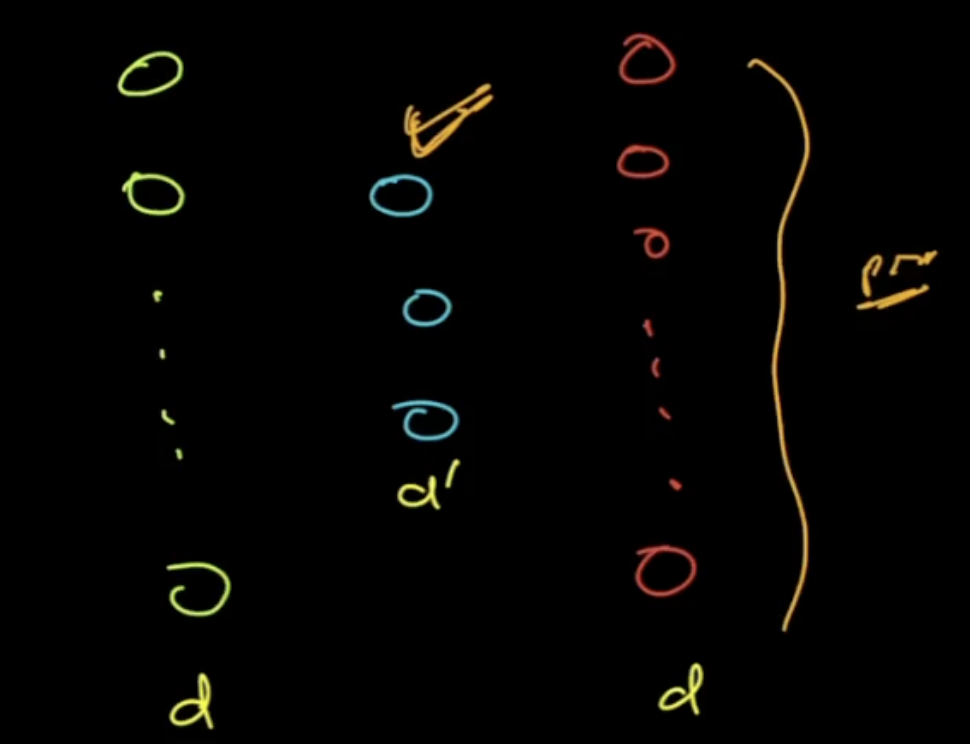 d'
d
d